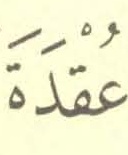 عُقْدَةَ